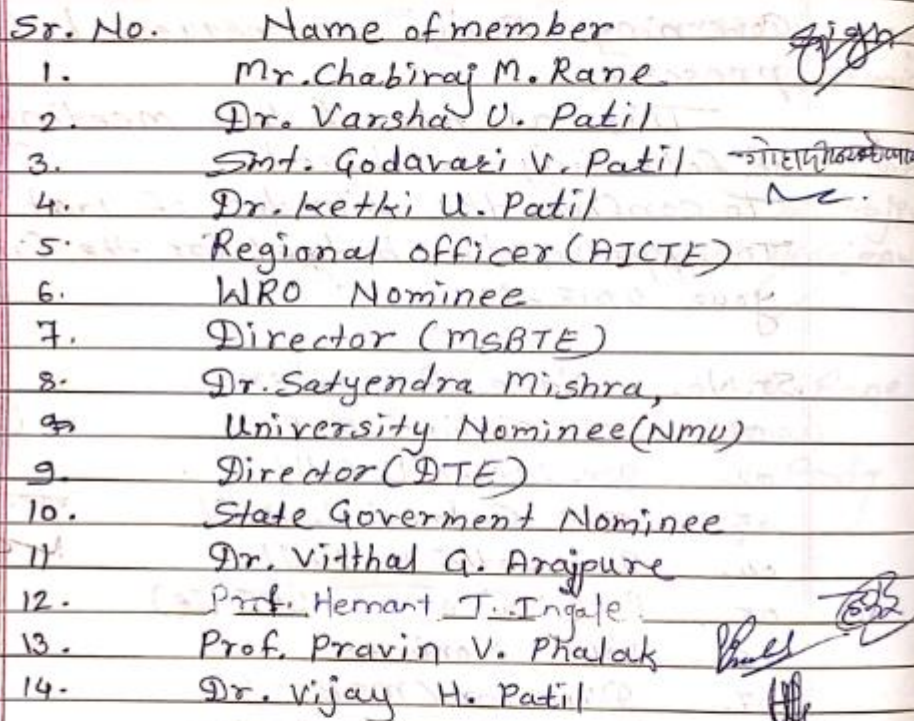 Sr. No. Name of member Sign
1. Mr. Chabiraj M. Rane
2. Dr. Varsha U. Patil
3. Smt. Godavari V. Patil
4. Dr. Ketki U. Patil
5. Regional officer (AICTE)
6. WRO Nominee
7. Director (MSBTE)
8. Dr. Satyendra Mishra,
University Nominee (NMU)
9. Director (DTE)
10. State Goverment Nominee
11 Dr. Vitthal G. Arajpure
12. Prof. Hemant T. Ingale
13. Prof. Pravin V. Phalak
14. Dr. Vijay H. Patil